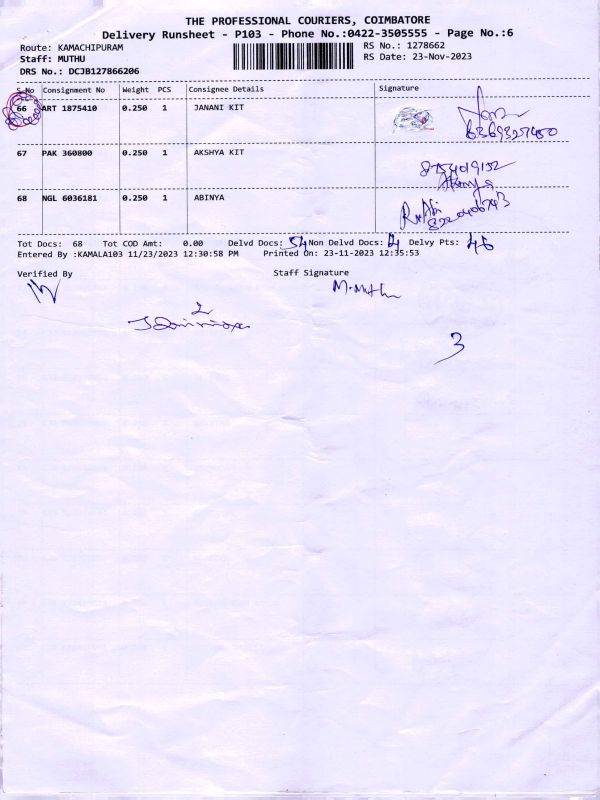 THE PROFESSIONAL COURIERS, COIMBATORE
Delivery Runsheet - P103 - Phone No.:0422-3505555 - Page No.:6
Route: KAMACHIPURAM
RS No.: 1278662
Staff: MUTHU
RS Date: 23-Nov-2023
DRS No.: DCJB127866206
S.No Consignment No Weight PCS Consignee Details Signature
66 ART 1875410 0.250 1 JANANI KIT
67 PAK 360800 0.250 1 AKSHYA KIT
68 NGL 6036181 0.250 1 ABINYA
Tot Docs: 68 Tot COD Amt: 0.00 Delvd Docs: 54 Non Delvd Docs: Delvy Pts: 46
Entered By :KAMALA103 11/23/2023 12:30:58 PM Printed On: 23-11-2023 12:35:53
Verified By Staff Signature
M. Muthu
2
3